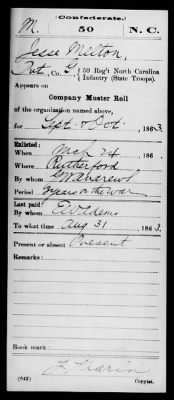 Confederate.
M. 50 N. C.
Jesse Milton,
Pvt, Co. G, 50 Reg't North Carolina
Infantry (State Troops)
Appears on
Company Muster Roll
of the organization named above,
for Sept & Oct, 1863.
Enlisted:
When Mch 24, 186 .
Where Rutherford
By whom G W Andrews
Period 3 years or the war
Last paid:
By whom
To what time Aug 31, 1863.
Present or absent Present
Remarks:
Book mark:
(642) Copyist.